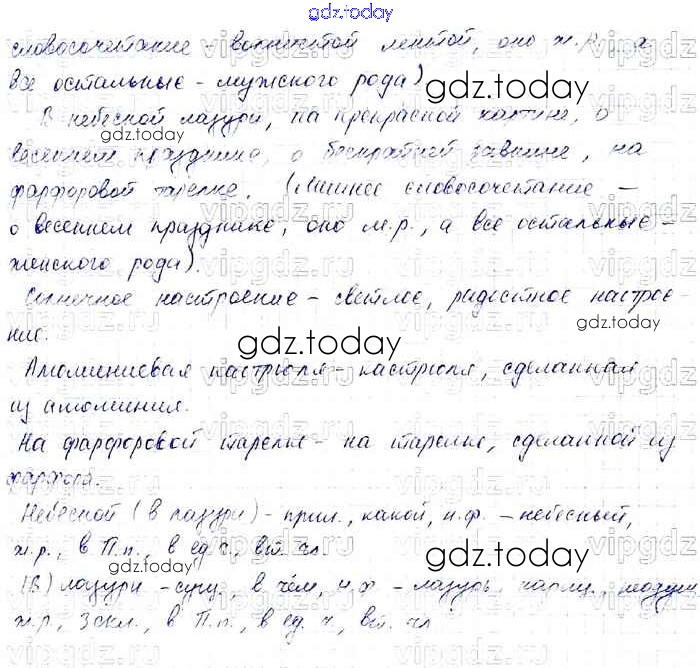 gdz.today
словосочетание – волнистой лентой, оно ж.р., а
все остальные – мужского рода)
В небесной лазури, на прекрасной картине, о
весеннем празднике, о бескрайней, на
фарфоровой тарелке. (Лишнее словосочетание –
о весеннем празднике, оно м.р., а все остальные –
женского рода).
Солнечное настроение – светлое, радостное настрое-
ние.
Алюминиевая кастрюля – кастрюля, сделанная
из алюминия.
На фарфоровой тарелке – на тарелке, сделанной из
фарфора.
Небесной (в лазури) – прил., какой, н.ф. – небесный,
ж.р., в П.п., в ед.ч., вт. чл.
(В) лазури – сущ., в чём, н.ф. – лазурь, нариц.,
ж.р., 3 скл., в П.п., в ед.ч., вт. чл.